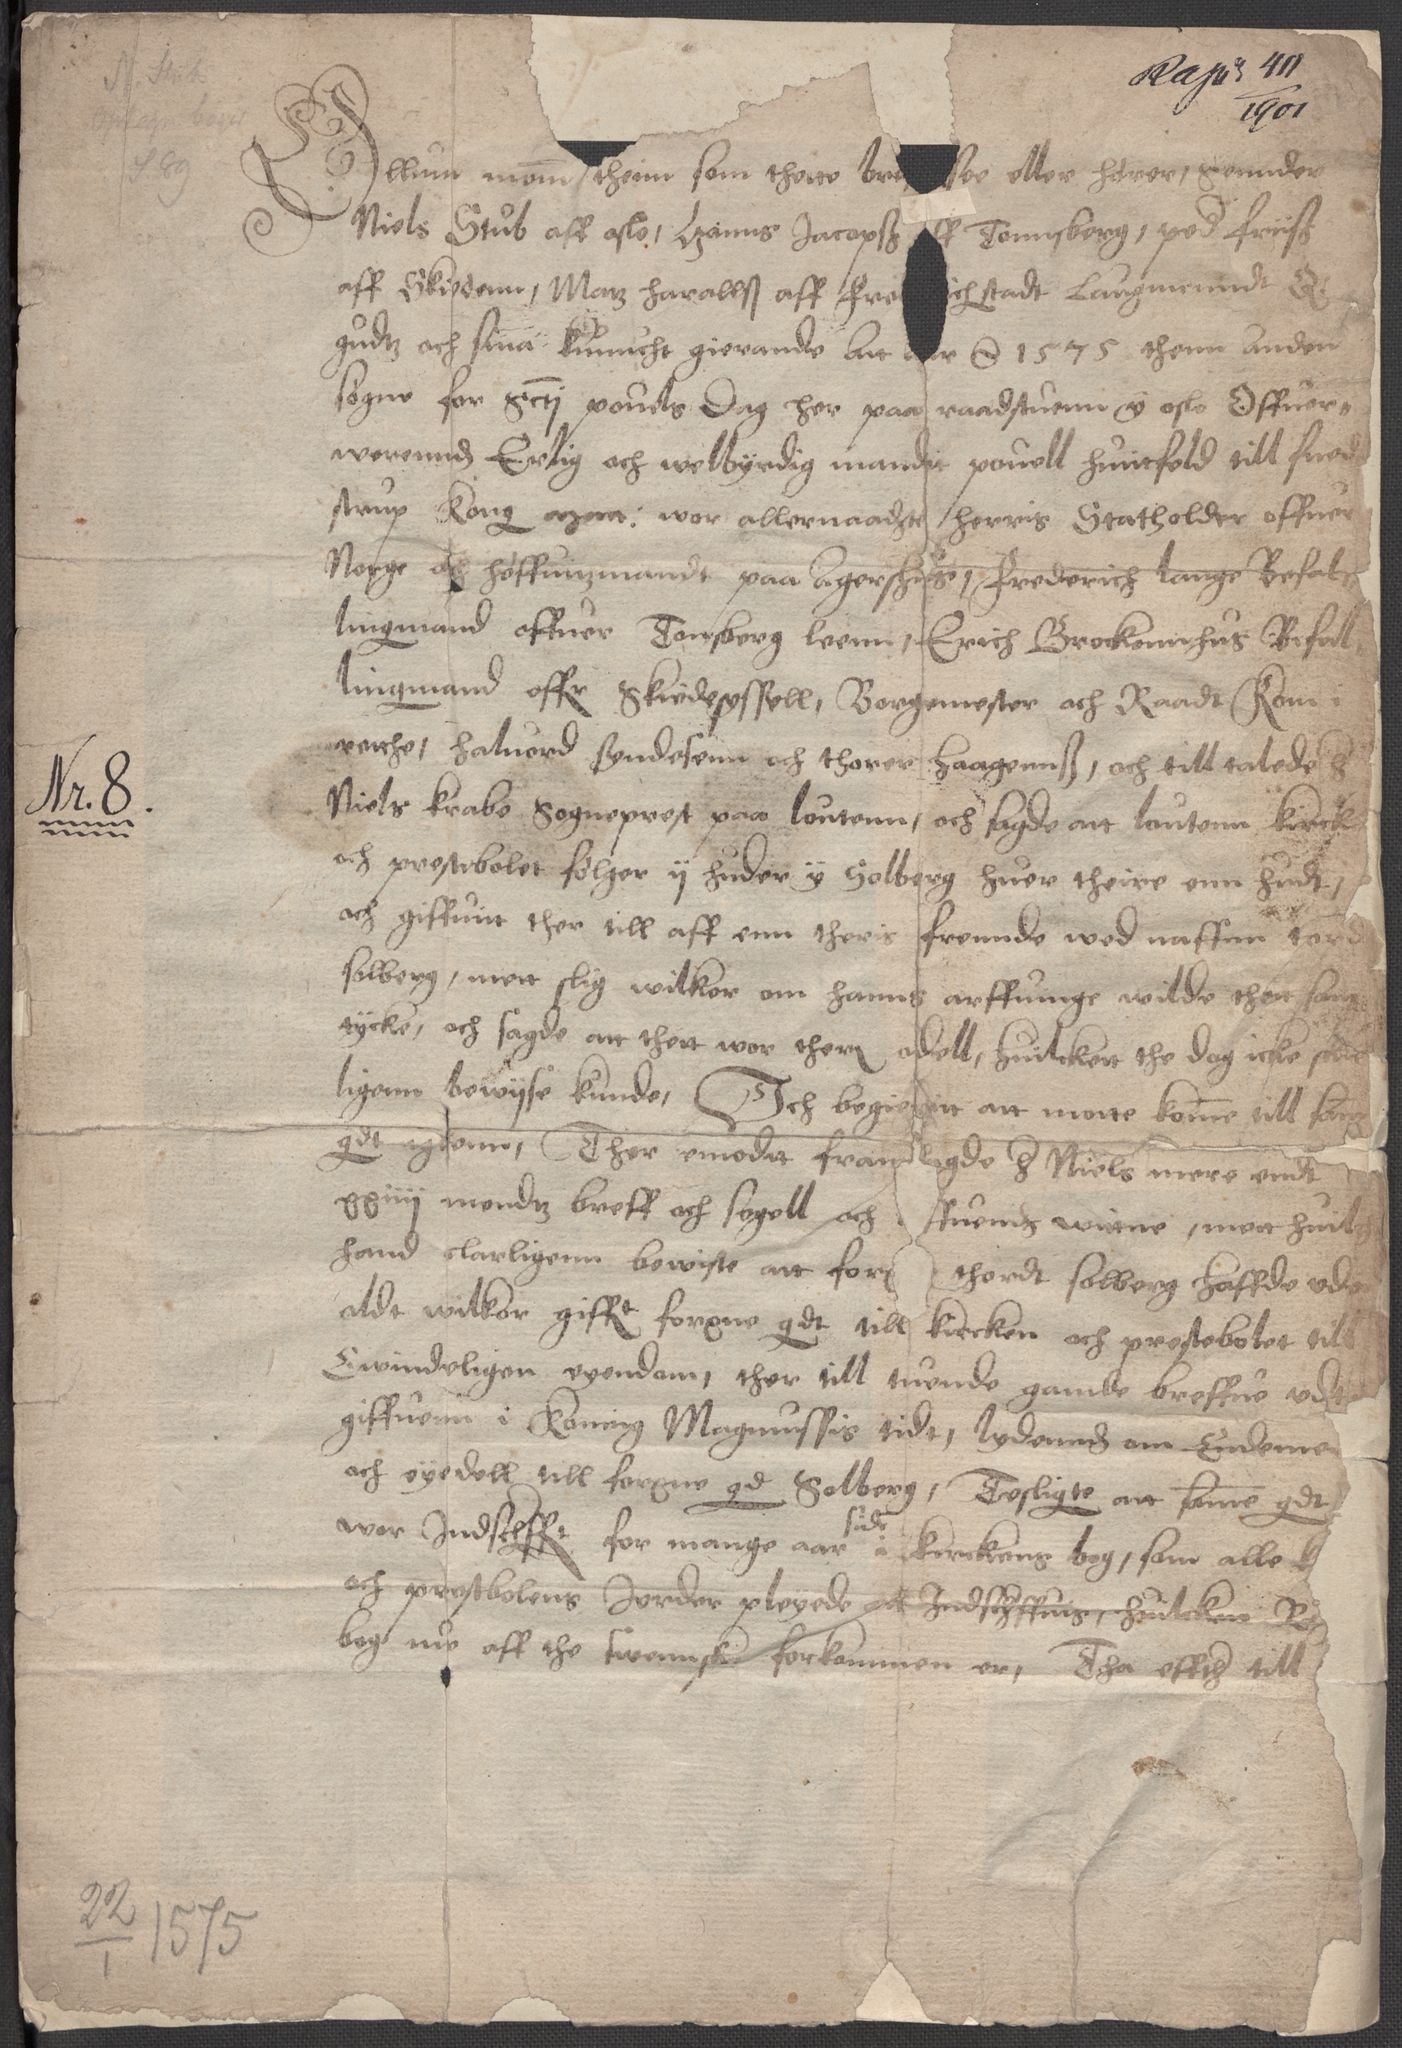 N. Stub
S 89
411
1901
Allum mom̄ theim som thette bre see eller hører, Sennder
Niels Stub aff oslo, Hanns Jacopß ff Tonnsberg, ped friiß
aff Skiedenn, Matz harallß aff fre ichstadt Laugmenndt
gudtz och sina kunnucht gierande Att aar & 1575 thenn Anden
søgne for Scti pouels Dag her paa raadstuenn y oslo Offuer-
werennds Erlig och welbyrdig mandt pouell huitfeld till
strup Kong maitt: wor allernaadste herris Statholder offuer
Norge och høffuitzmandt paa Agershus, frederich lange Befal-
lingmand offuer Tonsberg leenn, Erich Brockennhus Befall-
lingmand offr Skiedesyssell, Borgemester och Raadt Kom i
rette, haluord syndesenn och thorer Haagennß, och till talede H
Niels krabe Sogneprest paa loutenn, och sagde att loutenn kirck
och prestebolet følger ij huder y Solberg huer theire enn hudt,
och giffuit ther till aff enn theris frennde wed naffnn tord
solberg, mett slig wilkor om hanns arffuinge wilde thet sam
tycke, och sagde att thet wor theris odell, huilckett the dog icke
ligenn bewijse kunde, Och begierett att motte kom̄e till sam̄e
gdt igienn, Ther emodet fram lagde H Niels mere endt
xxiiij mendtz breff och segell och wittne, mett huilcke
hand clarligenn bewiste att for thordt solberg haffde vden
aldt wilkor gifft forsne gdt till kircken och prestebolet till
Ewindeligen eyendom, ther till tuende gamble breffue vdt
giffuenn i Koning Magnussis tidt, lydennds om Endeme
och eyedell till forsne gd Solberg, Tesligte att sam̄e gdt
wor Indschfft for mange aar siden i kirckens bog, som alle k
och prestbolens Jorder pleyede att Indschffuis, huilckenn
bog nu aff the swennske forkommen er, Tha effth till
Nr. 8.
22
1
1575